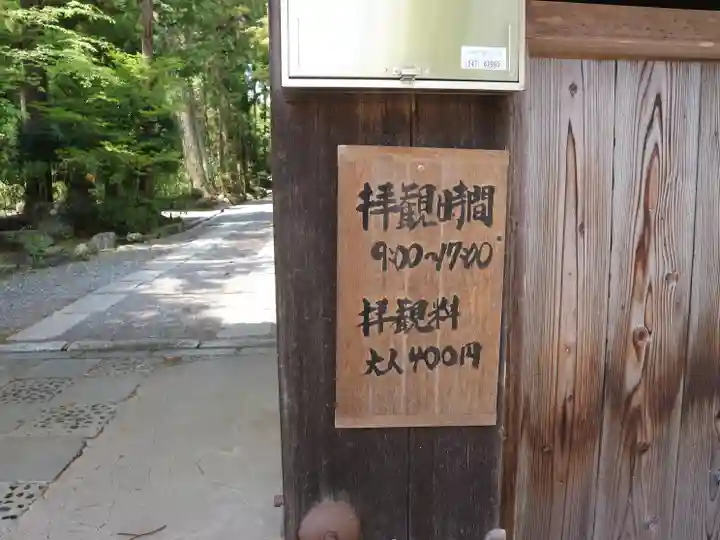 拝観時間
9:00〜17:00
拝観料
大人400円